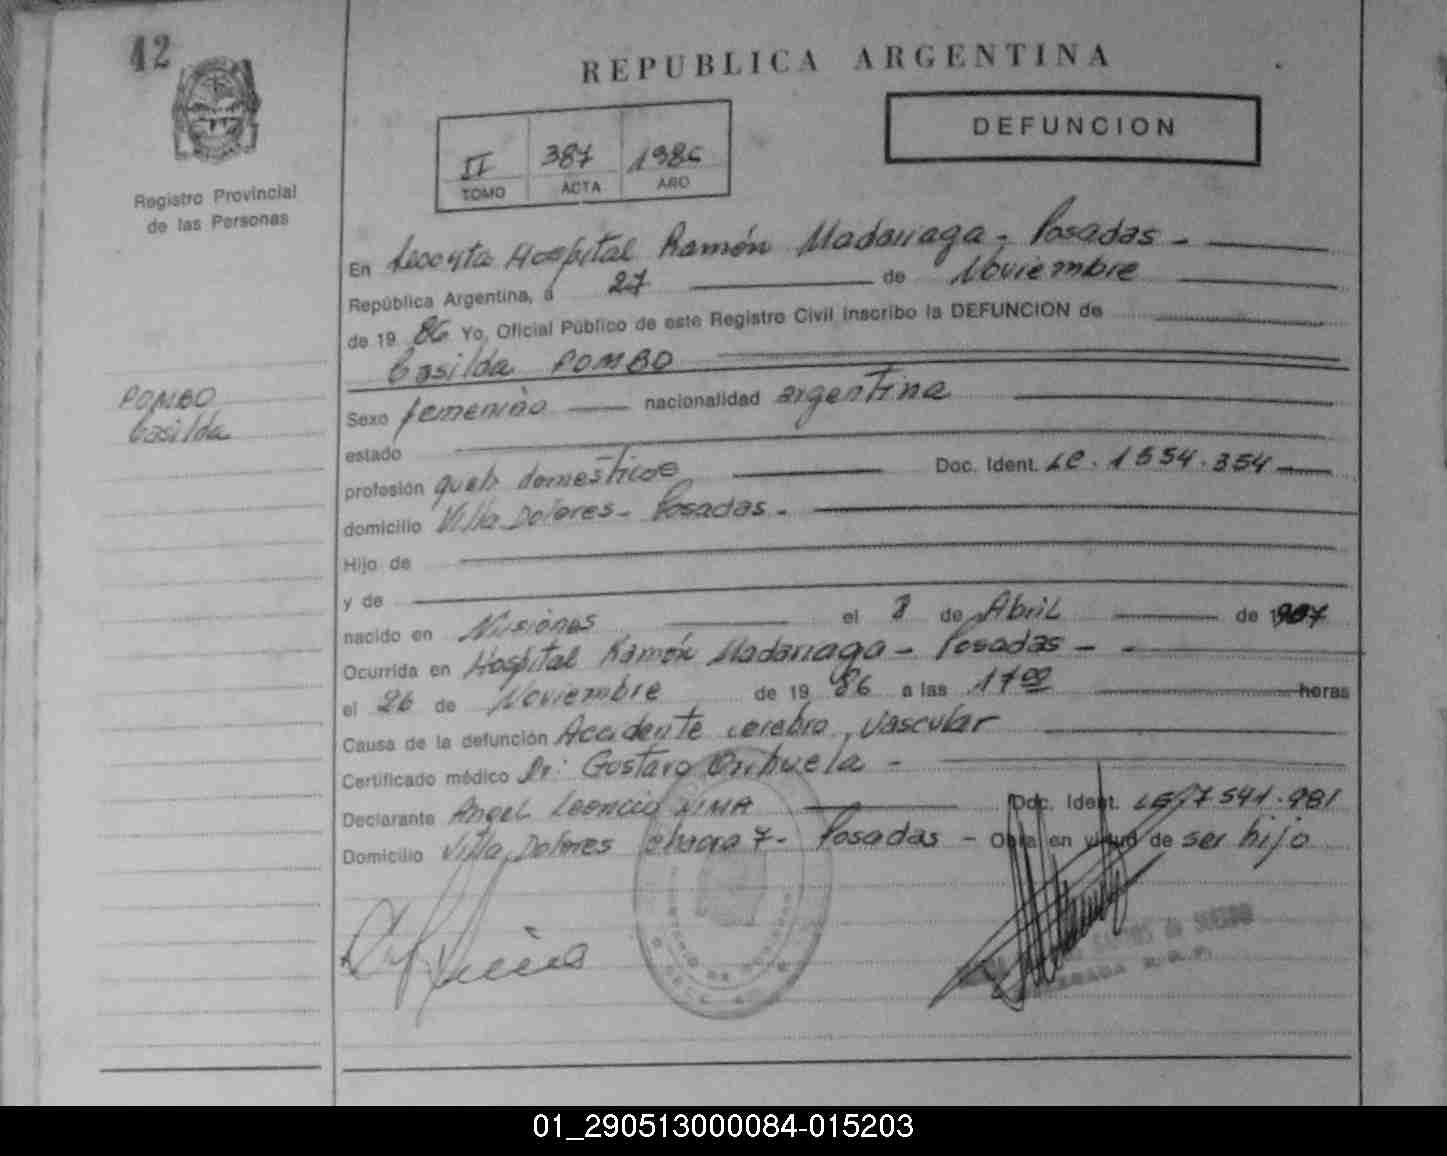 42
REPUBLICA ARGENTINA
DEFUNCION
II 387 1986
TOMO ACTA AÑO
Registro Provincial
de las Personas
En Hospital Ramón Madariaga - Posadas -
República Argentina, a 27 de Noviembre
de 19 86 Yo, Oficial Público de este Registro Civil inscribo la DEFUNCION de
Casilda POMBO
POMBO
Casilda
Sexo femenino nacionalidad argentina
estado
profesión queh domesticos Doc. Ident. LC. 1554.354
domicilio Villa Dolores - Posadas -
Hijo de
y de
nacido en Misiones el 8 de Abril de 1907
Ocurrida en Hospital Ramón Madariaga - Posadas -
el 26 de Noviembre de 19 86 a las 17 00 horas
Causa de la defunción Accidente cerebro vascular
Certificado médico Dr: Gustavo Orihuela -
Declarante Angel Leoncio NIMA Doc. Ident. LE 7541.981
Domicilio Villa Dolores chacra 7 - Posadas - Obra en virtud de ser hijo
01_290513000084-015203